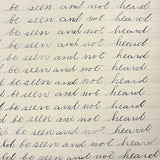 be seen and not heard
be seen and not heard
be seen and not heard
be seen and not heard
be seen and not heard
be seen and not heard
be seen and not heard
d be seen and not heard
d be seen and not heard
ld be seen and not heard